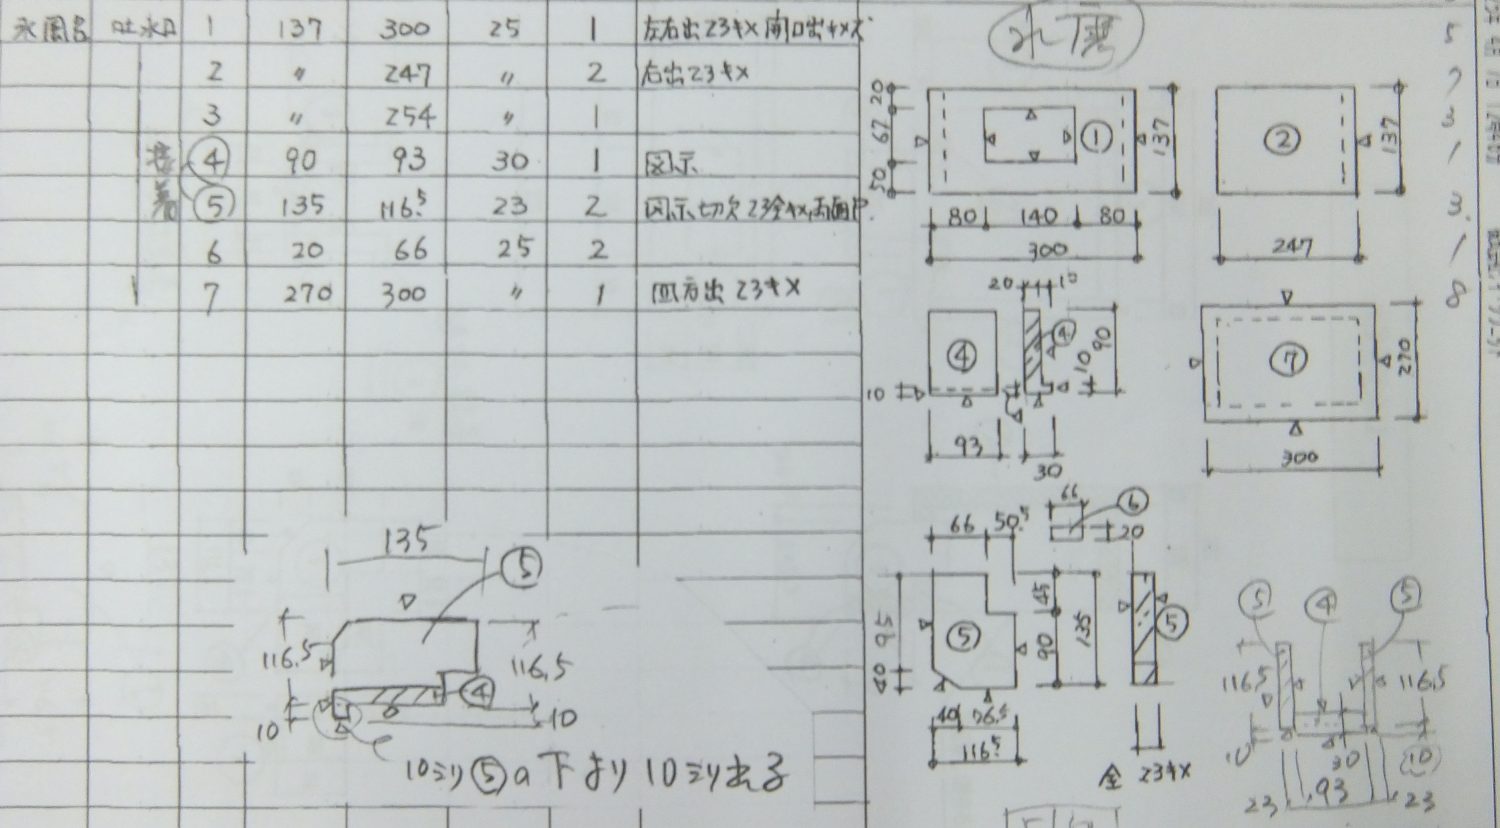 吐水口 1 137 300 25 1 左右出23キメ
2 〃 247 〃 2 右出23キメ
3 〃 254 〃 1
接着 ④ 90 93 30 1 図示
⑤ 135 116.5 23 2 図示、切欠23全キメ、両面
6 20 66 25 2
7 270 300 〃 1 四方出23キメ
20 67 50
① 137
80 140 80
300
② 137
247
20 10
④ ④ 10 90
10
93 30
⑦ 270
300
66 ⑥
66 50.5 20
⑤ 45 90 135 ⑤
40
40 76.5
116.5
全 23キメ
135 ⑤
116.5 116.5
④
10 10
10ミリ⑤の下より10ミリ出る
⑤ ④ ⑤
116.5 116.5
10 30 (10)
23 93 23
5
7
3
1
3
1
8